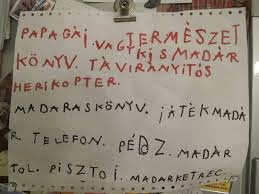 PAPAGÁJ. VAGY TERMÉSZET
KIS MADÁR
KÖNYV. TÁVIRÁNYÍTÓS
HERIKOPTER.
MADARASKÖNYV. JÁTÉKMADÁ
R TELEFON. PÉNZ. MADÁR
TOL. PISZTOJ. MADARKETREC...